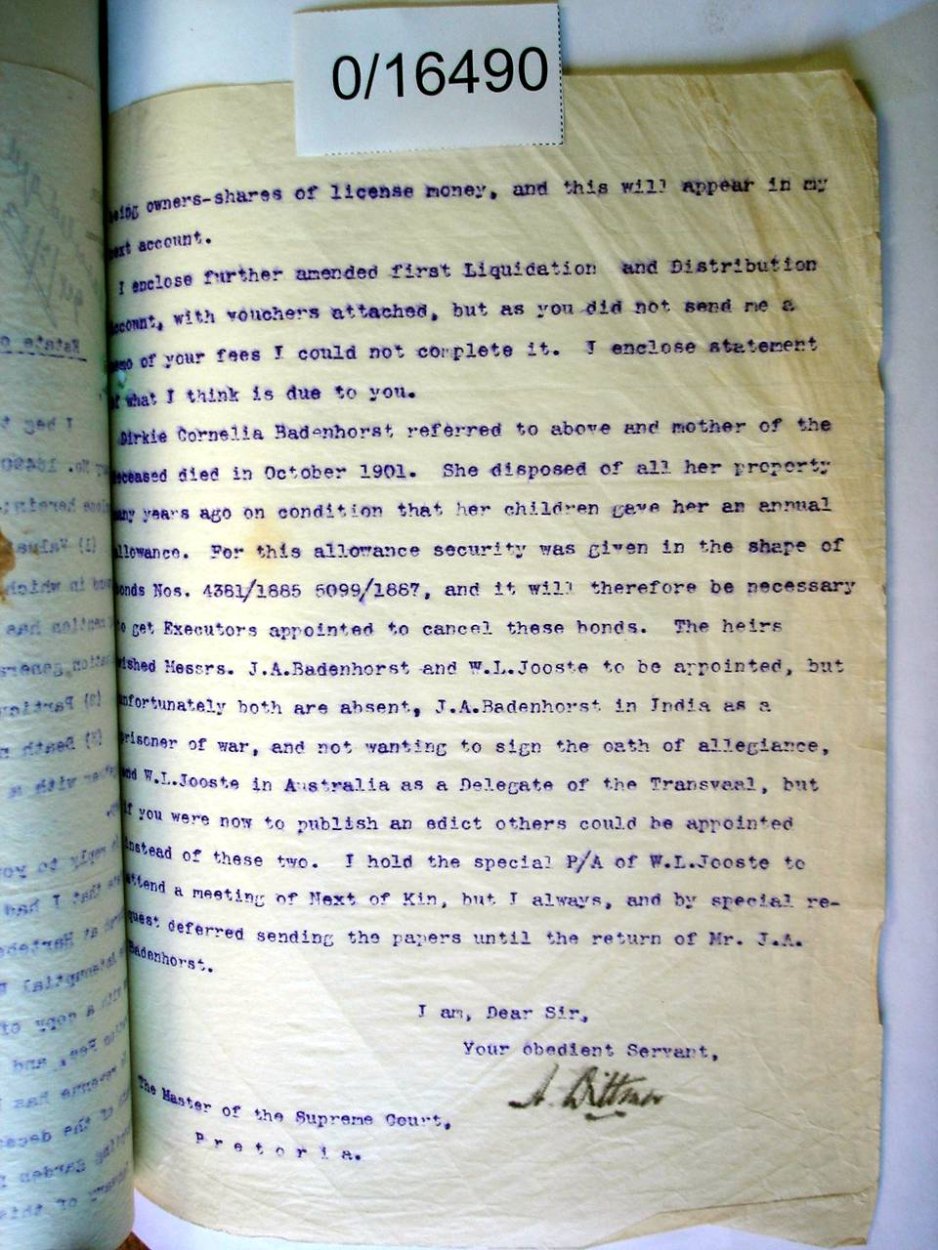 0/16490
being owners-shares of license money, and this will appear in my
next account.
I enclose further amended first Liquidation and Distribution
account, with vouchers attached, but as you did not send me a
memo of your fees I could not complete it. I enclose statement
of what I think is due to you.
Dirkie Cornelia Badenhorst referred to above and mother of the
deceased died in October 1901. She disposed of all her property
many years ago on condition that her children gave her an annual
allowance. For this allowance security was given in the shape of
bonds Nos. 4381/1885 5099/1887, and it will therefore be necessary
to get Executors appointed to cancel these bonds. The heirs
wished Messrs. J.A.Badenhorst and W.L.Jooste to be appointed, but
unfortunately both are absent, J.A.Badenhorst in India as a
prisoner of war, and not wanting to sign the oath of allegiance,
and W.L.Jooste in Australia as a Delegate of the Transvaal, but
if you were now to publish an edict others could be appointed
instead of these two. I hold the special P/A of W.L.Jooste to
attend a meeting of Next of Kin, but I always, and by special re-
quest deferred sending the papers until the return of Mr. J.A.
Badenhorst.
I am, Dear Sir,
Your obedient Servant,
A. Dittmar
The Master of the Supreme Court,
Pretoria.